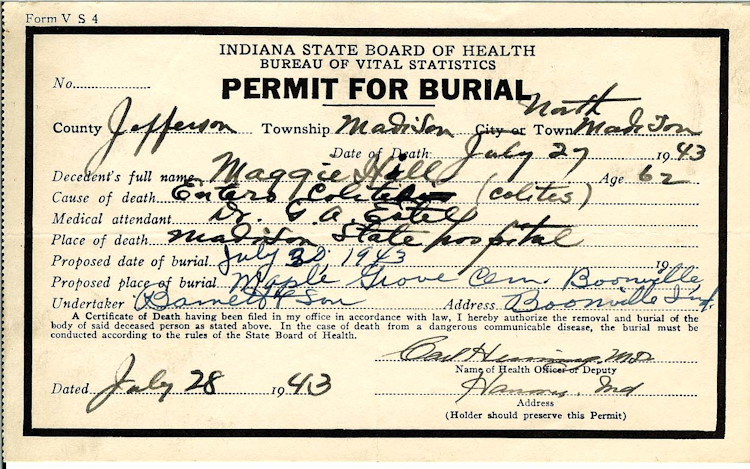 Form V S 4
INDIANA STATE BOARD OF HEALTH
BUREAU OF VITAL STATISTICS
No.
PERMIT FOR BURIAL
North
County Jefferson Township Madison City or Town Madison
Date of Death July 27 1943
Decedent's full name Maggie Hill Age 62
Cause of death Entero Colitis (colites)
Medical attendant Dr. G. A. Estell
Place of death Madison State hospital
Proposed date of burial July 30, 1943 19
Proposed place of burial Maple Grove Cem. Boonville
Undertaker Barnett & Son Address Boonville Ind.
A Certificate of Death having been filed in my office in accordance with law, I hereby authorize the removal and burial of the
body of said deceased person as stated above. In the case of death from a dangerous communicable disease, the burial must be
conducted according to the rules of the State Board of Health.
Carl M.D.
Name of Health Officer or Deputy
Dated July 28 1943
Ind
Address
(Holder should preserve this Permit)